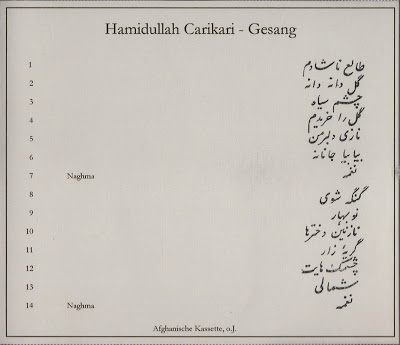 Hamidullah Carikari - Gesang
1 طالع ناشادم
2 گل دانه دانه
3 چشم سیاه
4 گل را خریدم
5 نازی دلبر من
6 بیا بیا جانانه
7 Naghma نغمه
8 گنگه شوی
9 نو بهار
10 نازنین دخترها
11 گریهٔ زار
12 چشمک هایت
13 شمالی
14 Naghma نغمه
Afghanische Kassette, o.J.